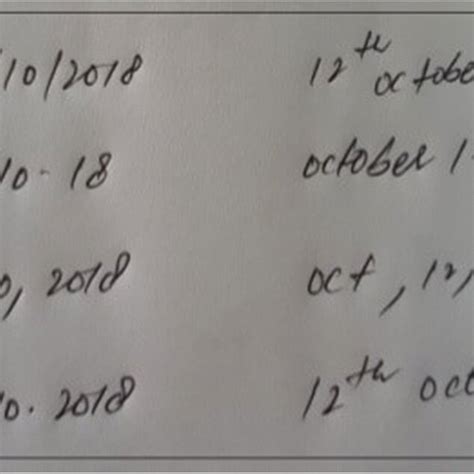 /10/2018 12th october
10-18 october 1
0, 2018 oct, 12,
10. 2018 12th oct